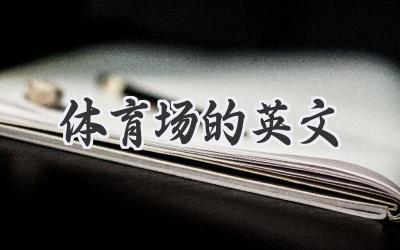 体育场的英文